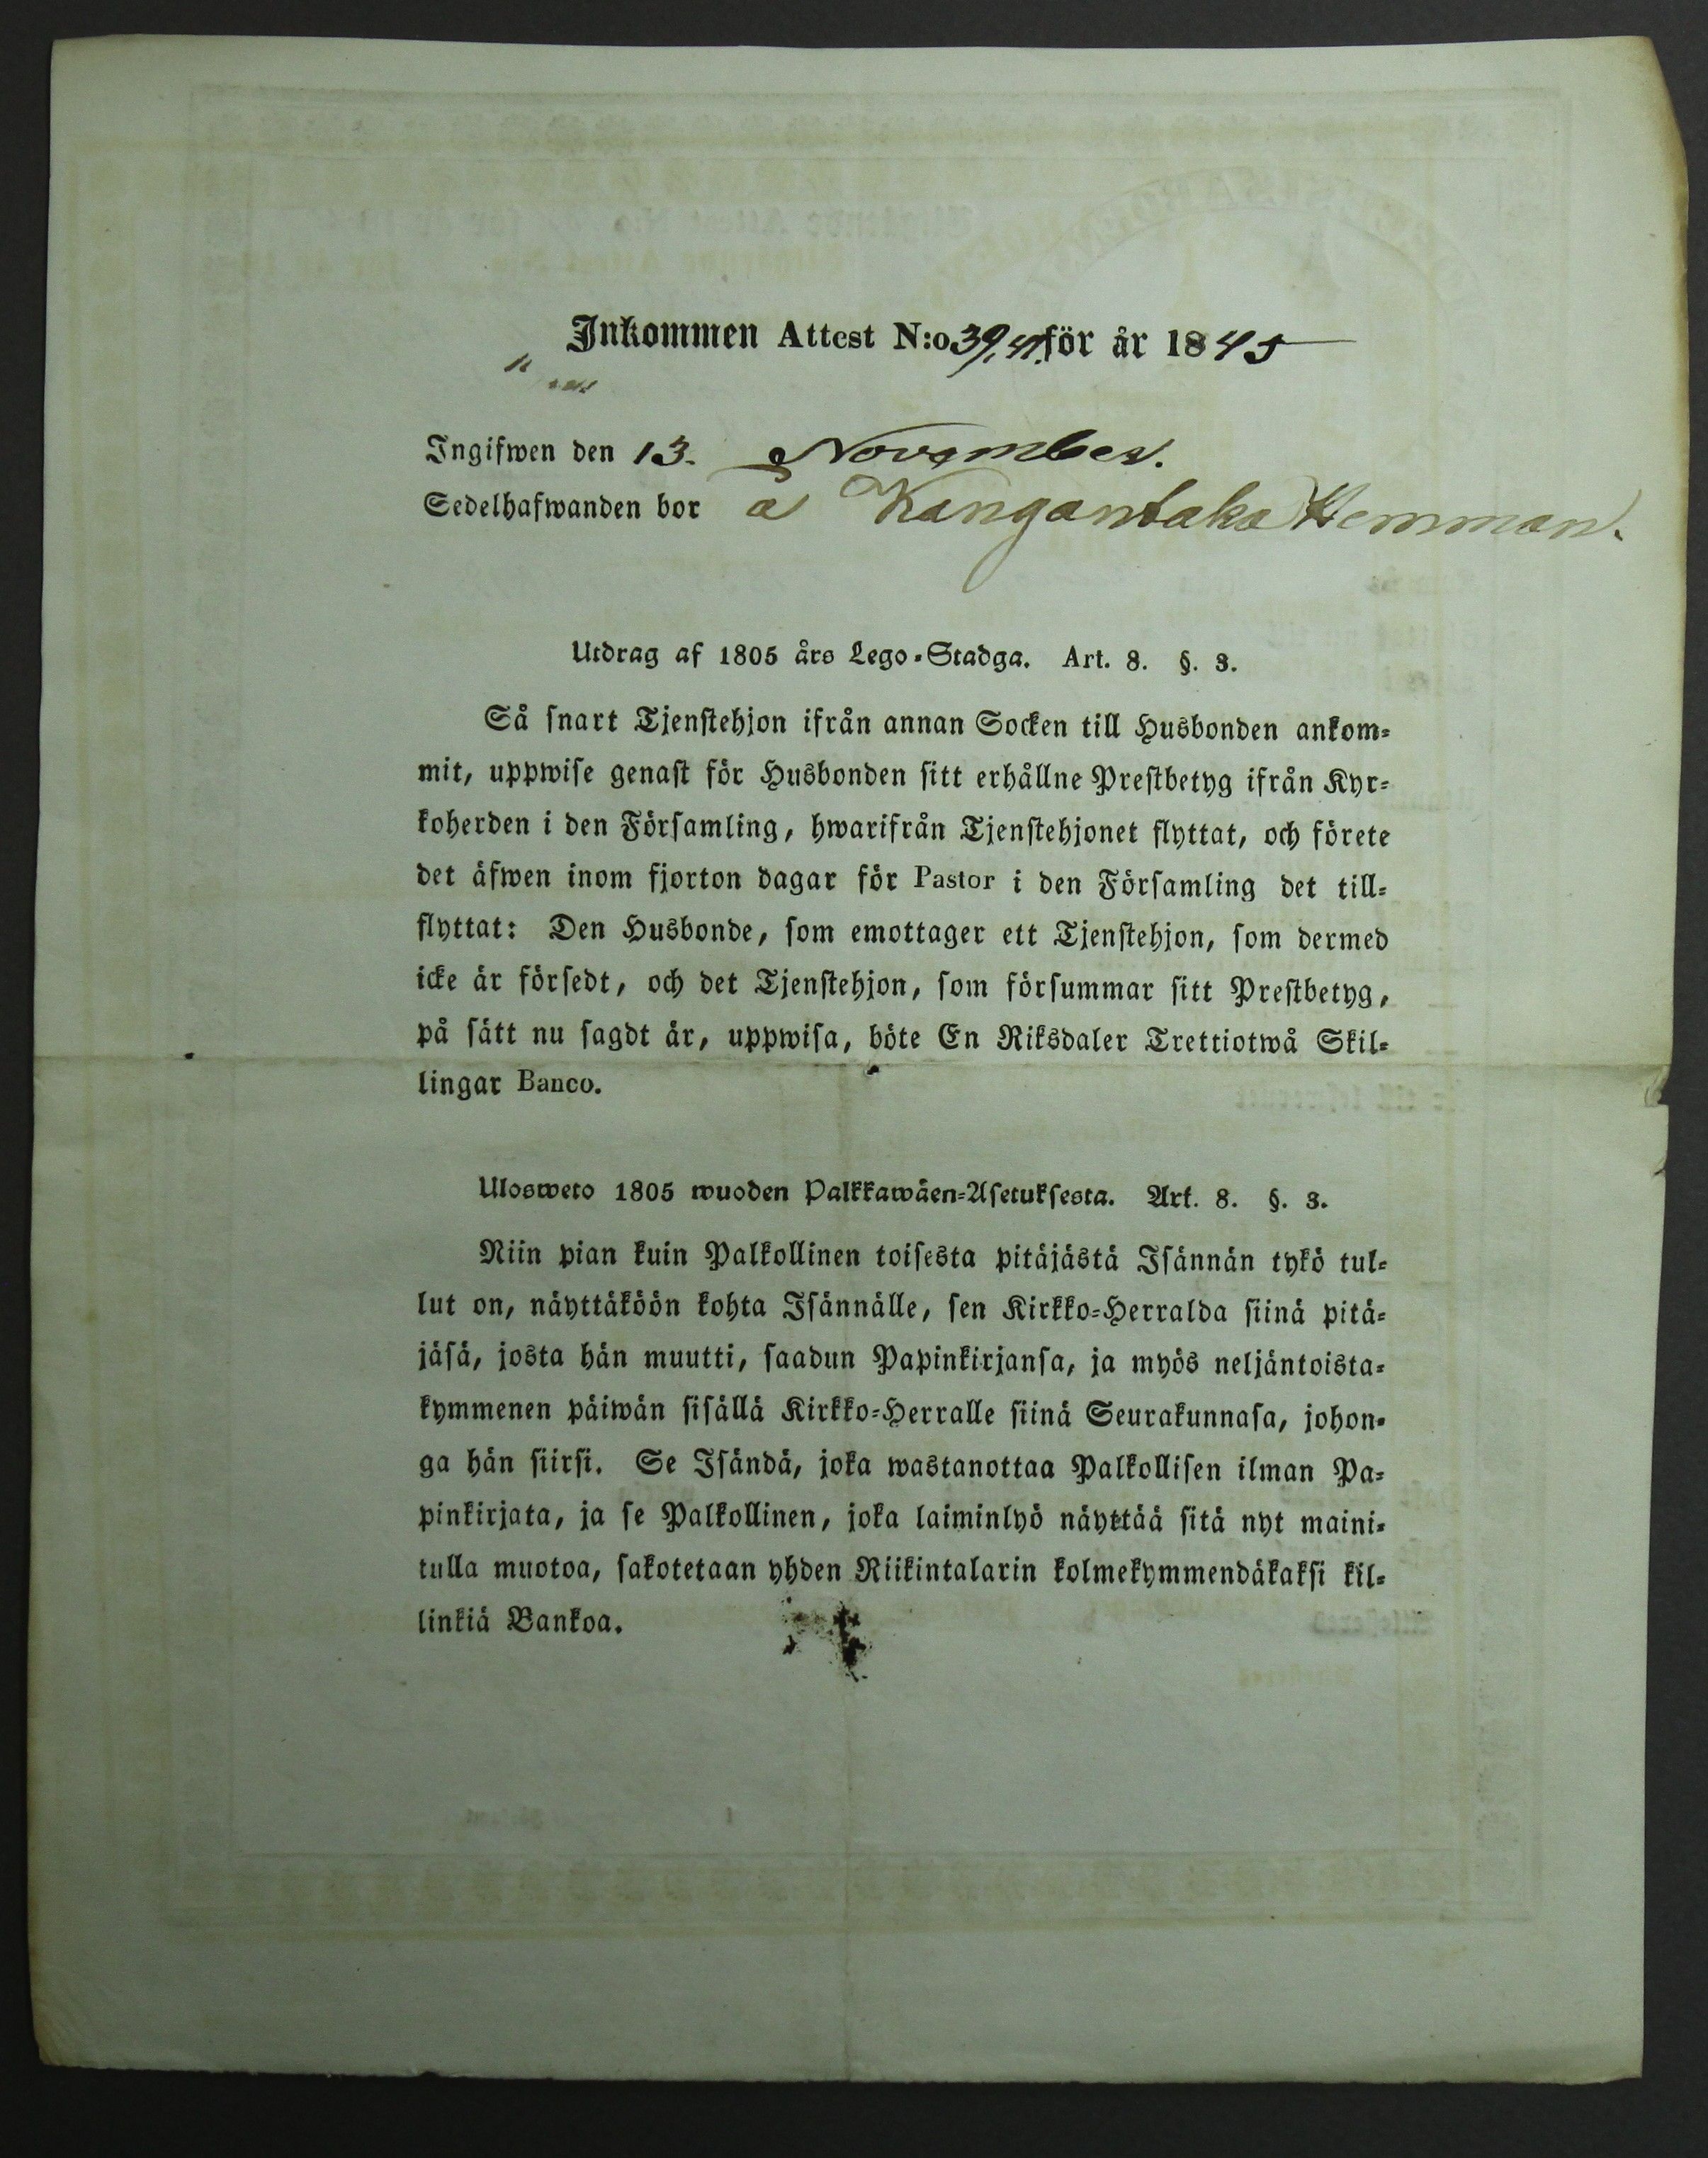 Inkommen Attest N:o 39,41. för år 1845
Ingifwen den 13. November.
Sedelhafwanden bor å Kangantaka Hemman.
Utdrag af 1805 års Lego-Stadga. Art. 8. §. 3.
Så snart Tjenstehjon ifrån annan Socken till Husbonden ankom-
mit, uppwise genast för Husbonden sitt erhållne Prestbetyg ifrån Kyr-
koherden i den Församling, hwarifrån Tjenstehjonet flyttat, och förete
det äfwen inom fjorton dagar för Pastor i den Församling det till-
flyttat: Den Husbonde, som emottager ett Tjenstehjon, som dermed
icke är försedt, och det Tjenstehjon, som försummar sitt Prestbetyg,
på sätt nu sagdt är, uppwisa, böte En Riksdaler Trettiotwå Skil-
lingar Banco.
Ulosweto 1805 wuoden Palkkawäen-Asetuksesta. Art. 8. §. 3.
Niin pian kuin Palkollinen toisesta pitäjästä Isännän tykö tul-
lut on, näyttäköön kohta Isännälle, sen Kirkko-Herralda siinä pitä-
jäsä, josta hän muutti, saadun Papinkirjansa, ja myös neljäntoista-
kymmenen päiwän sisällä Kirkko-Herralle siinä Seurakunnasa, johon-
ga hän siirsi. Se Isändä, joka wastanottaa Palkollisen ilman Pa-
pinkirjata, ja se Palkollinen, joka laiminlyö näyttää sitä nyt maini-
tulla muotoa, sakotetaan yhden Riikintalarin kolmekymmendäkaksi kil-
linkiä Bankoa.